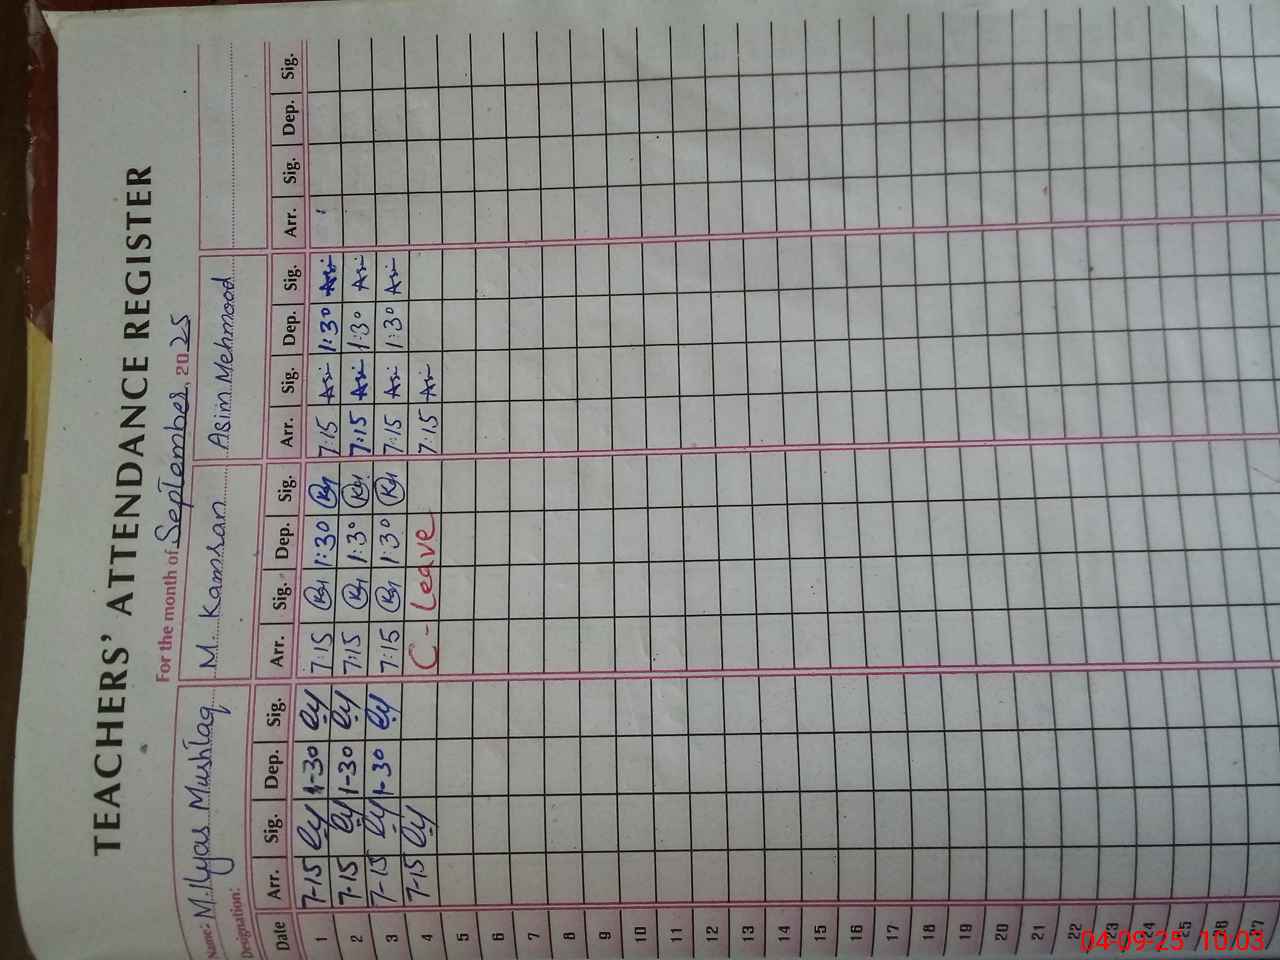 TEACHERS' ATTENDANCE REGISTER
For the month of September, 2025
Name: M. Ilyas Mushtaq M. Kamran Asim Mehmood
Designation:
Date Arr. Sig. Dep. Sig. Arr. Sig. Dep. Sig. Arr. Sig. Dep. Sig. Arr. Sig. Dep. Sig.
1 7-15 1-30 7:15 1:30 7:15 Asi 1:30 Asi
2 7-15 1-30 7:15 1:30 7:15 Asi 1:30 Asi
3 7-15 1-30 7:15 1:30 7:15 Asi 1:30 Asi
4 7-15 C-Leave 7:15 Asi
5
6
7
8
9
10
11
12
13
14
15
16
17
18
19
20
21
22
23
24
25
26
27
04-09-25 10:03